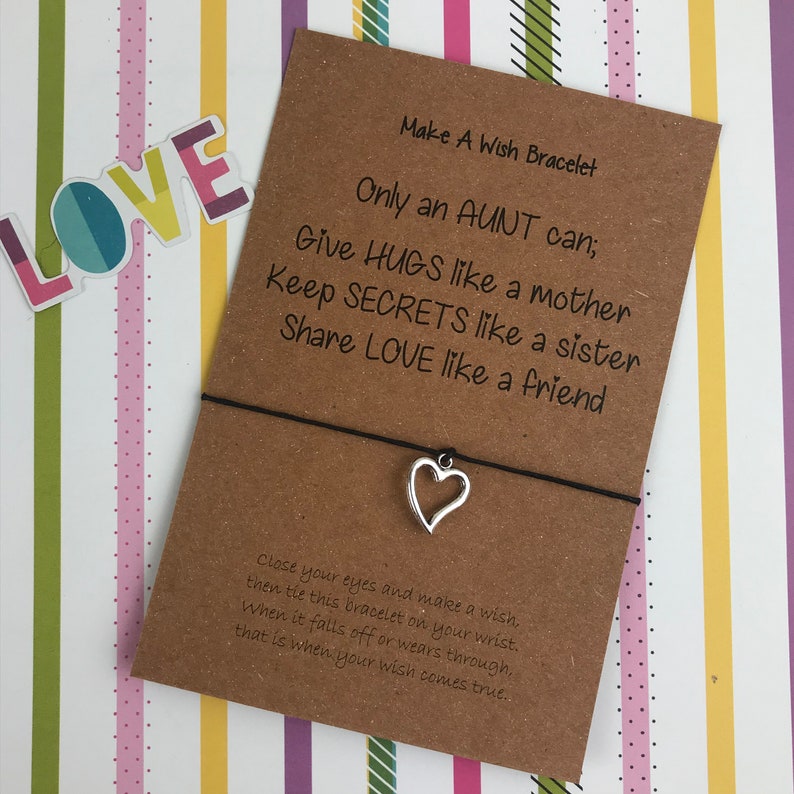 LOVE
Make A Wish Bracelet
Only an AUNT can;
Give HUGS like a mother
Keep SECRETS like a sister
Share LOVE like a friend
Close your eyes and make a wish,
then tie this bracelet on your wrist.
When it falls off or wears through,
that is when your wish comes true.